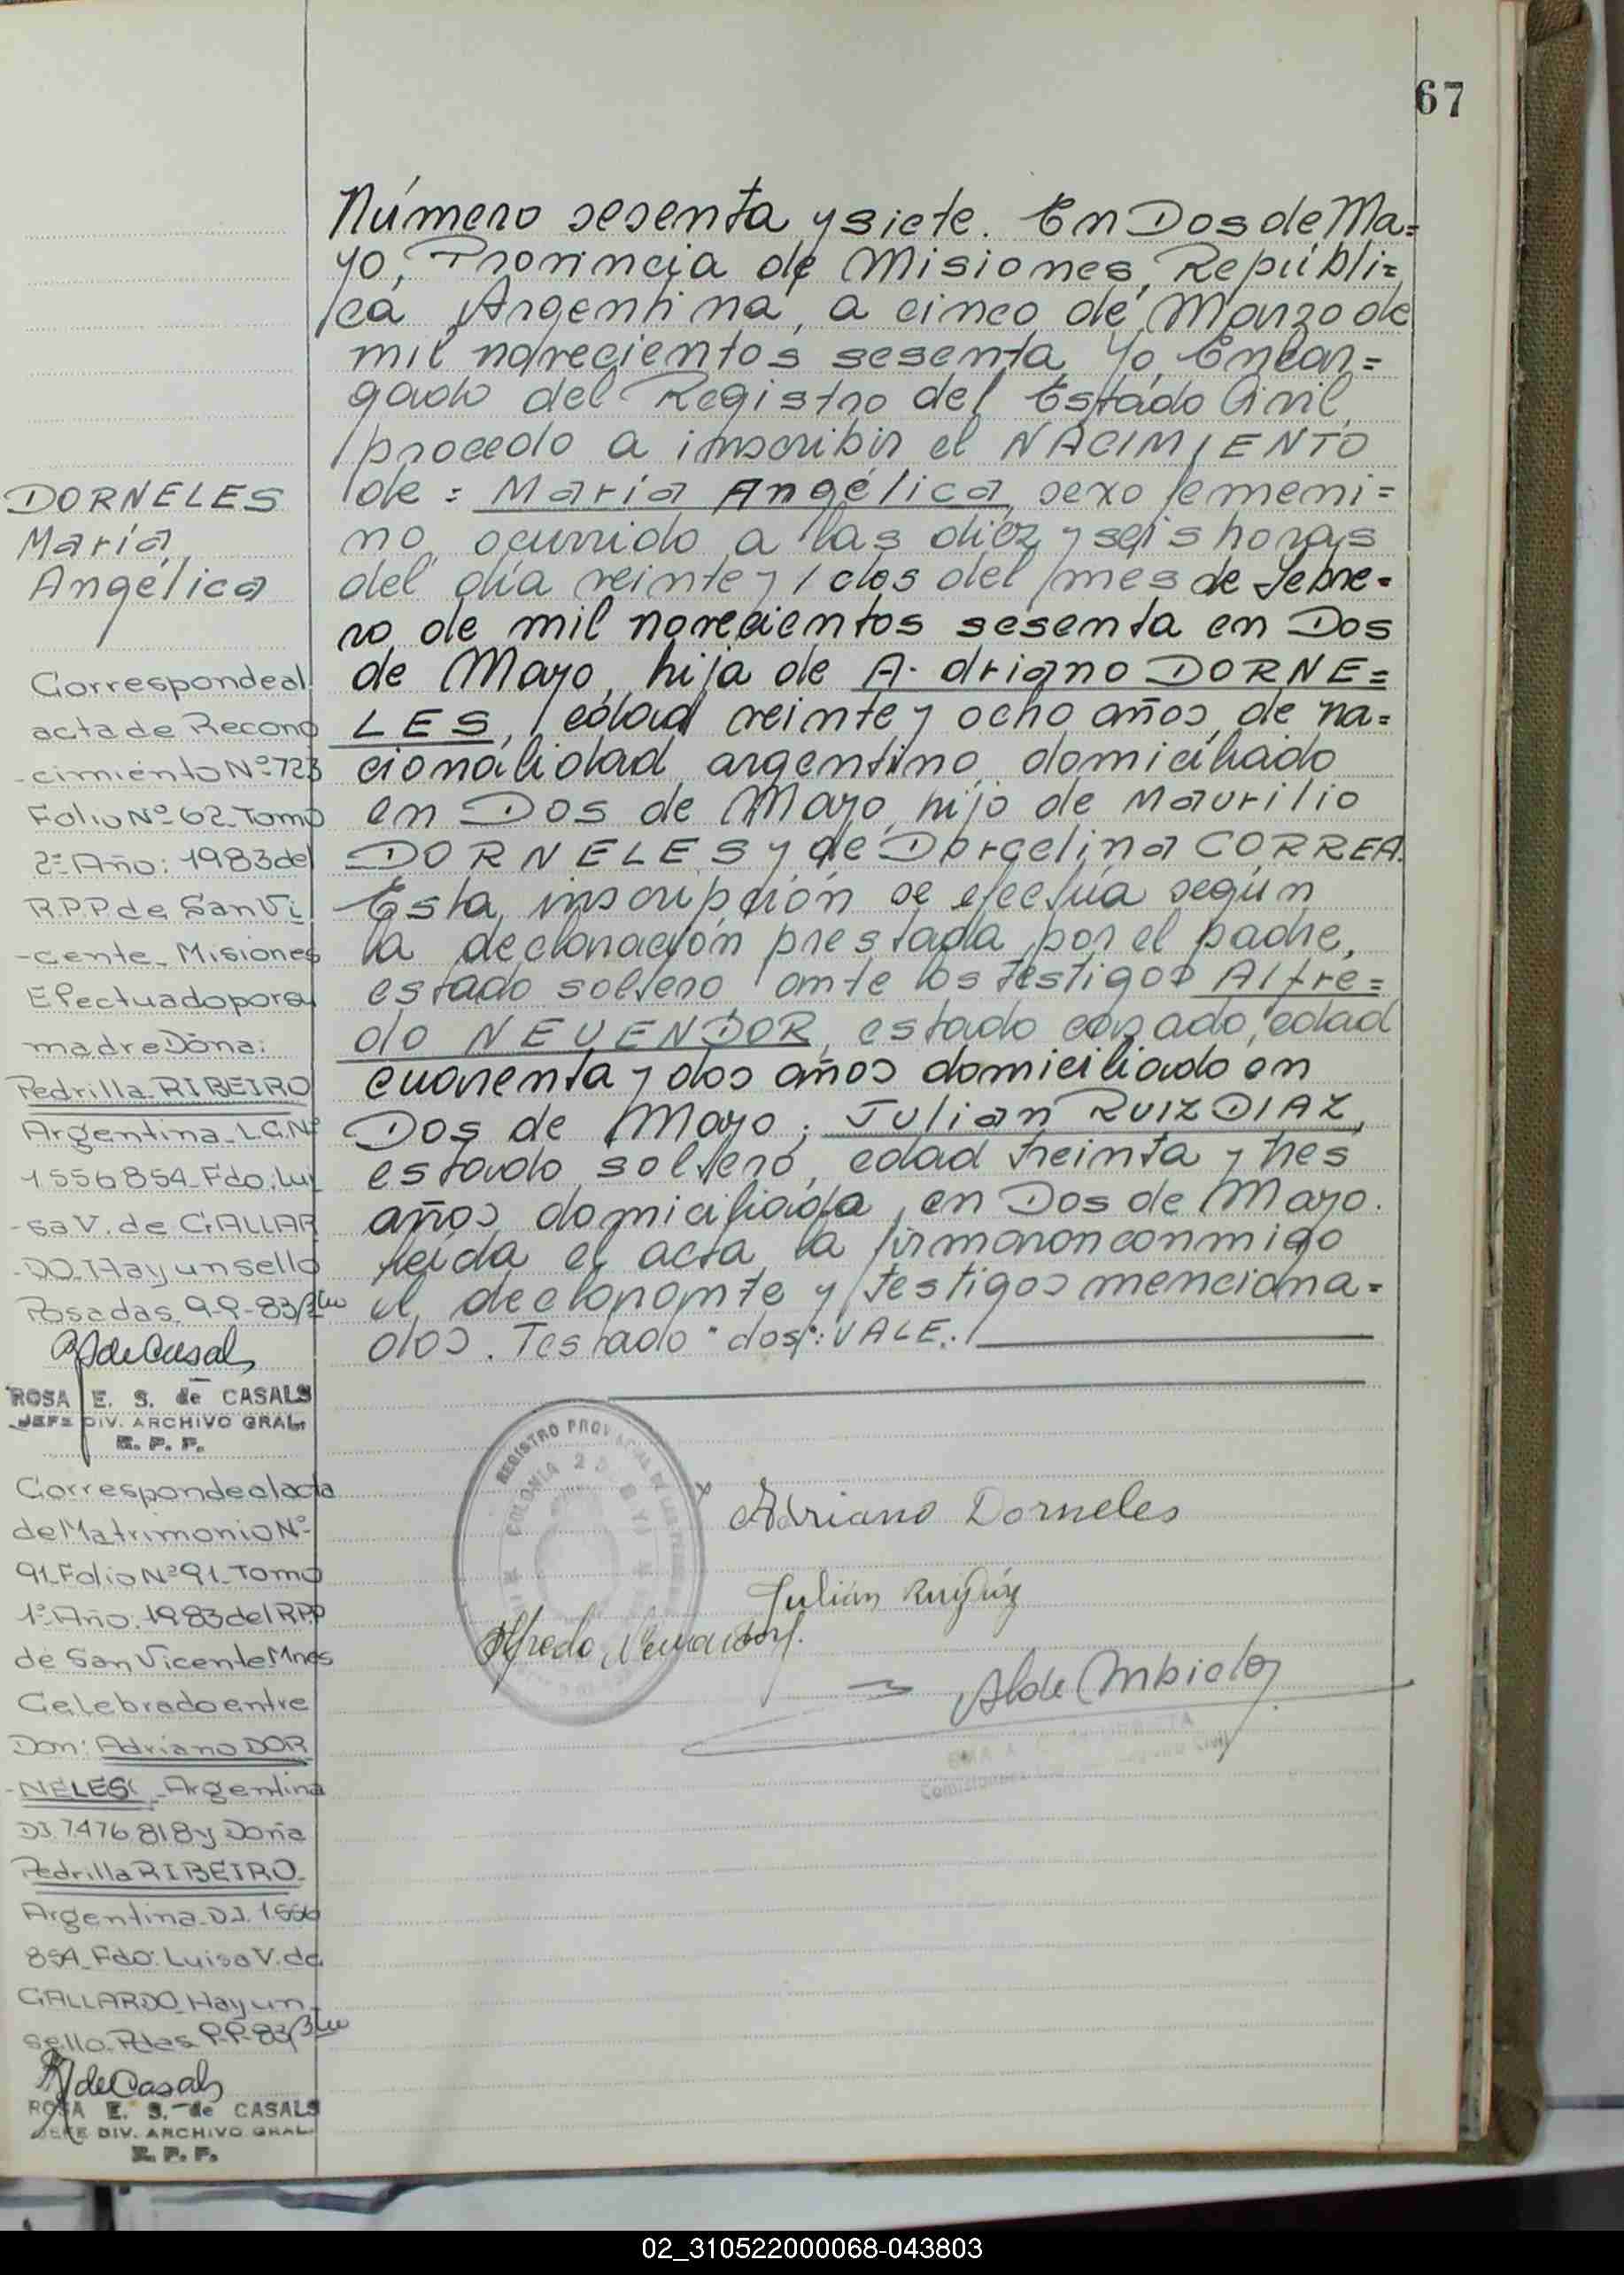 67
Número sesenta y siete. En Dos de Ma=
yo, Provincia de Misiones, Repúbli=
ca Argentina, a cinco de Marzo de
mil novecientos sesenta, Yo, Encar=
gado del Registro del Estado Civil,
procedo a inscribir el NACIMIENTO
de = María Angélica, sexo femeni=
no, ocurrido a las diez y seis horas
del día veinte y dos del mes de febre=
ro de mil novecientos sesenta en Dos
de Mayo, hija de A. driano DORNE=
LES, edad veinte y ocho años, de na=
cionalidad argentino domiciliado
en Dos de Mayo, hijo de Maurilio
DORNELES y de Dorcelina CORREA.
Esta inscripción se efectúa según
la declaración prestada por el padre,
estado soltero ante los testigos Alfre=
do NEUENDOR, estado casado, edad
cuarenta y dos años domiciliado en
Dos de Mayo; Julian RUIZ DIAZ,
estado soltero, edad treinta y tres
años domiciliada, en Dos de Mayo.
leída el acta la firmaron conmigo
el declarante y testigos menciona=
dos. Testado "dos": VALE.
DORNELES
María
Angélica
Corresponde al
acta de Recono
-cimiento Nº 723
Folio Nº 62 Tomo
2º Año: 1983 del
R.P.P de San Vi
-cente_Misiones
Efectuado por su
madre Dona:
Pedrilla RIBEIRO
Argentina_L.C.Nº
1556854_Fdo. Lui
-sa V. de GALLAR
-DO_Hay un sello
Posadas, 9-9-83
RdeCasals
ROSA E. S. de CASALS
JEFE DIV. ARCHIVO GRAL.
R. P. P.
Corresponde al acta
de Matrimonio Nº
91_Folio Nº 91_Tomo
1º Año: 1983 del RPP
de San Vicente Mnes
Celebrado entre
Don: Adriano DOR
-NELES_Argentina
DI 7476818 y Doña
Pedrilla RIBEIRO
Argentina_D.I. 1556
854_Fdo: Luisa V. de
GALLARDO_Hay un
sello. Pdas 9-9-83
RdeCasals
ROSA E. S. de CASALS
JEFE DIV. ARCHIVO GRAL
R. P. P.
REGISTRO PROVINCIAL DE LAS
COLONIA 2
Adriano Dorneles
Julián Ruiz Diaz
Alfredo Neuendorf.
02_310522000068-043803